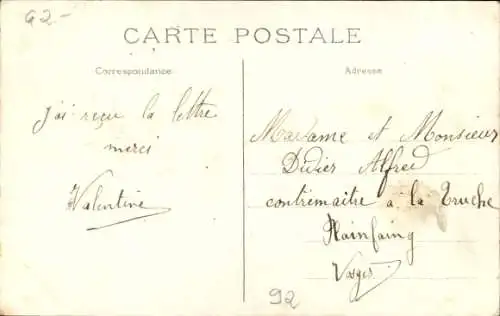 G2-
CARTE POSTALE
Correspondance
j'ai reçu la lettre
merci
Valentine
Adresse
Madame et Monsieur
Didier Alfred
contremaitre a la Truche
Plainfaing
Vosges
92